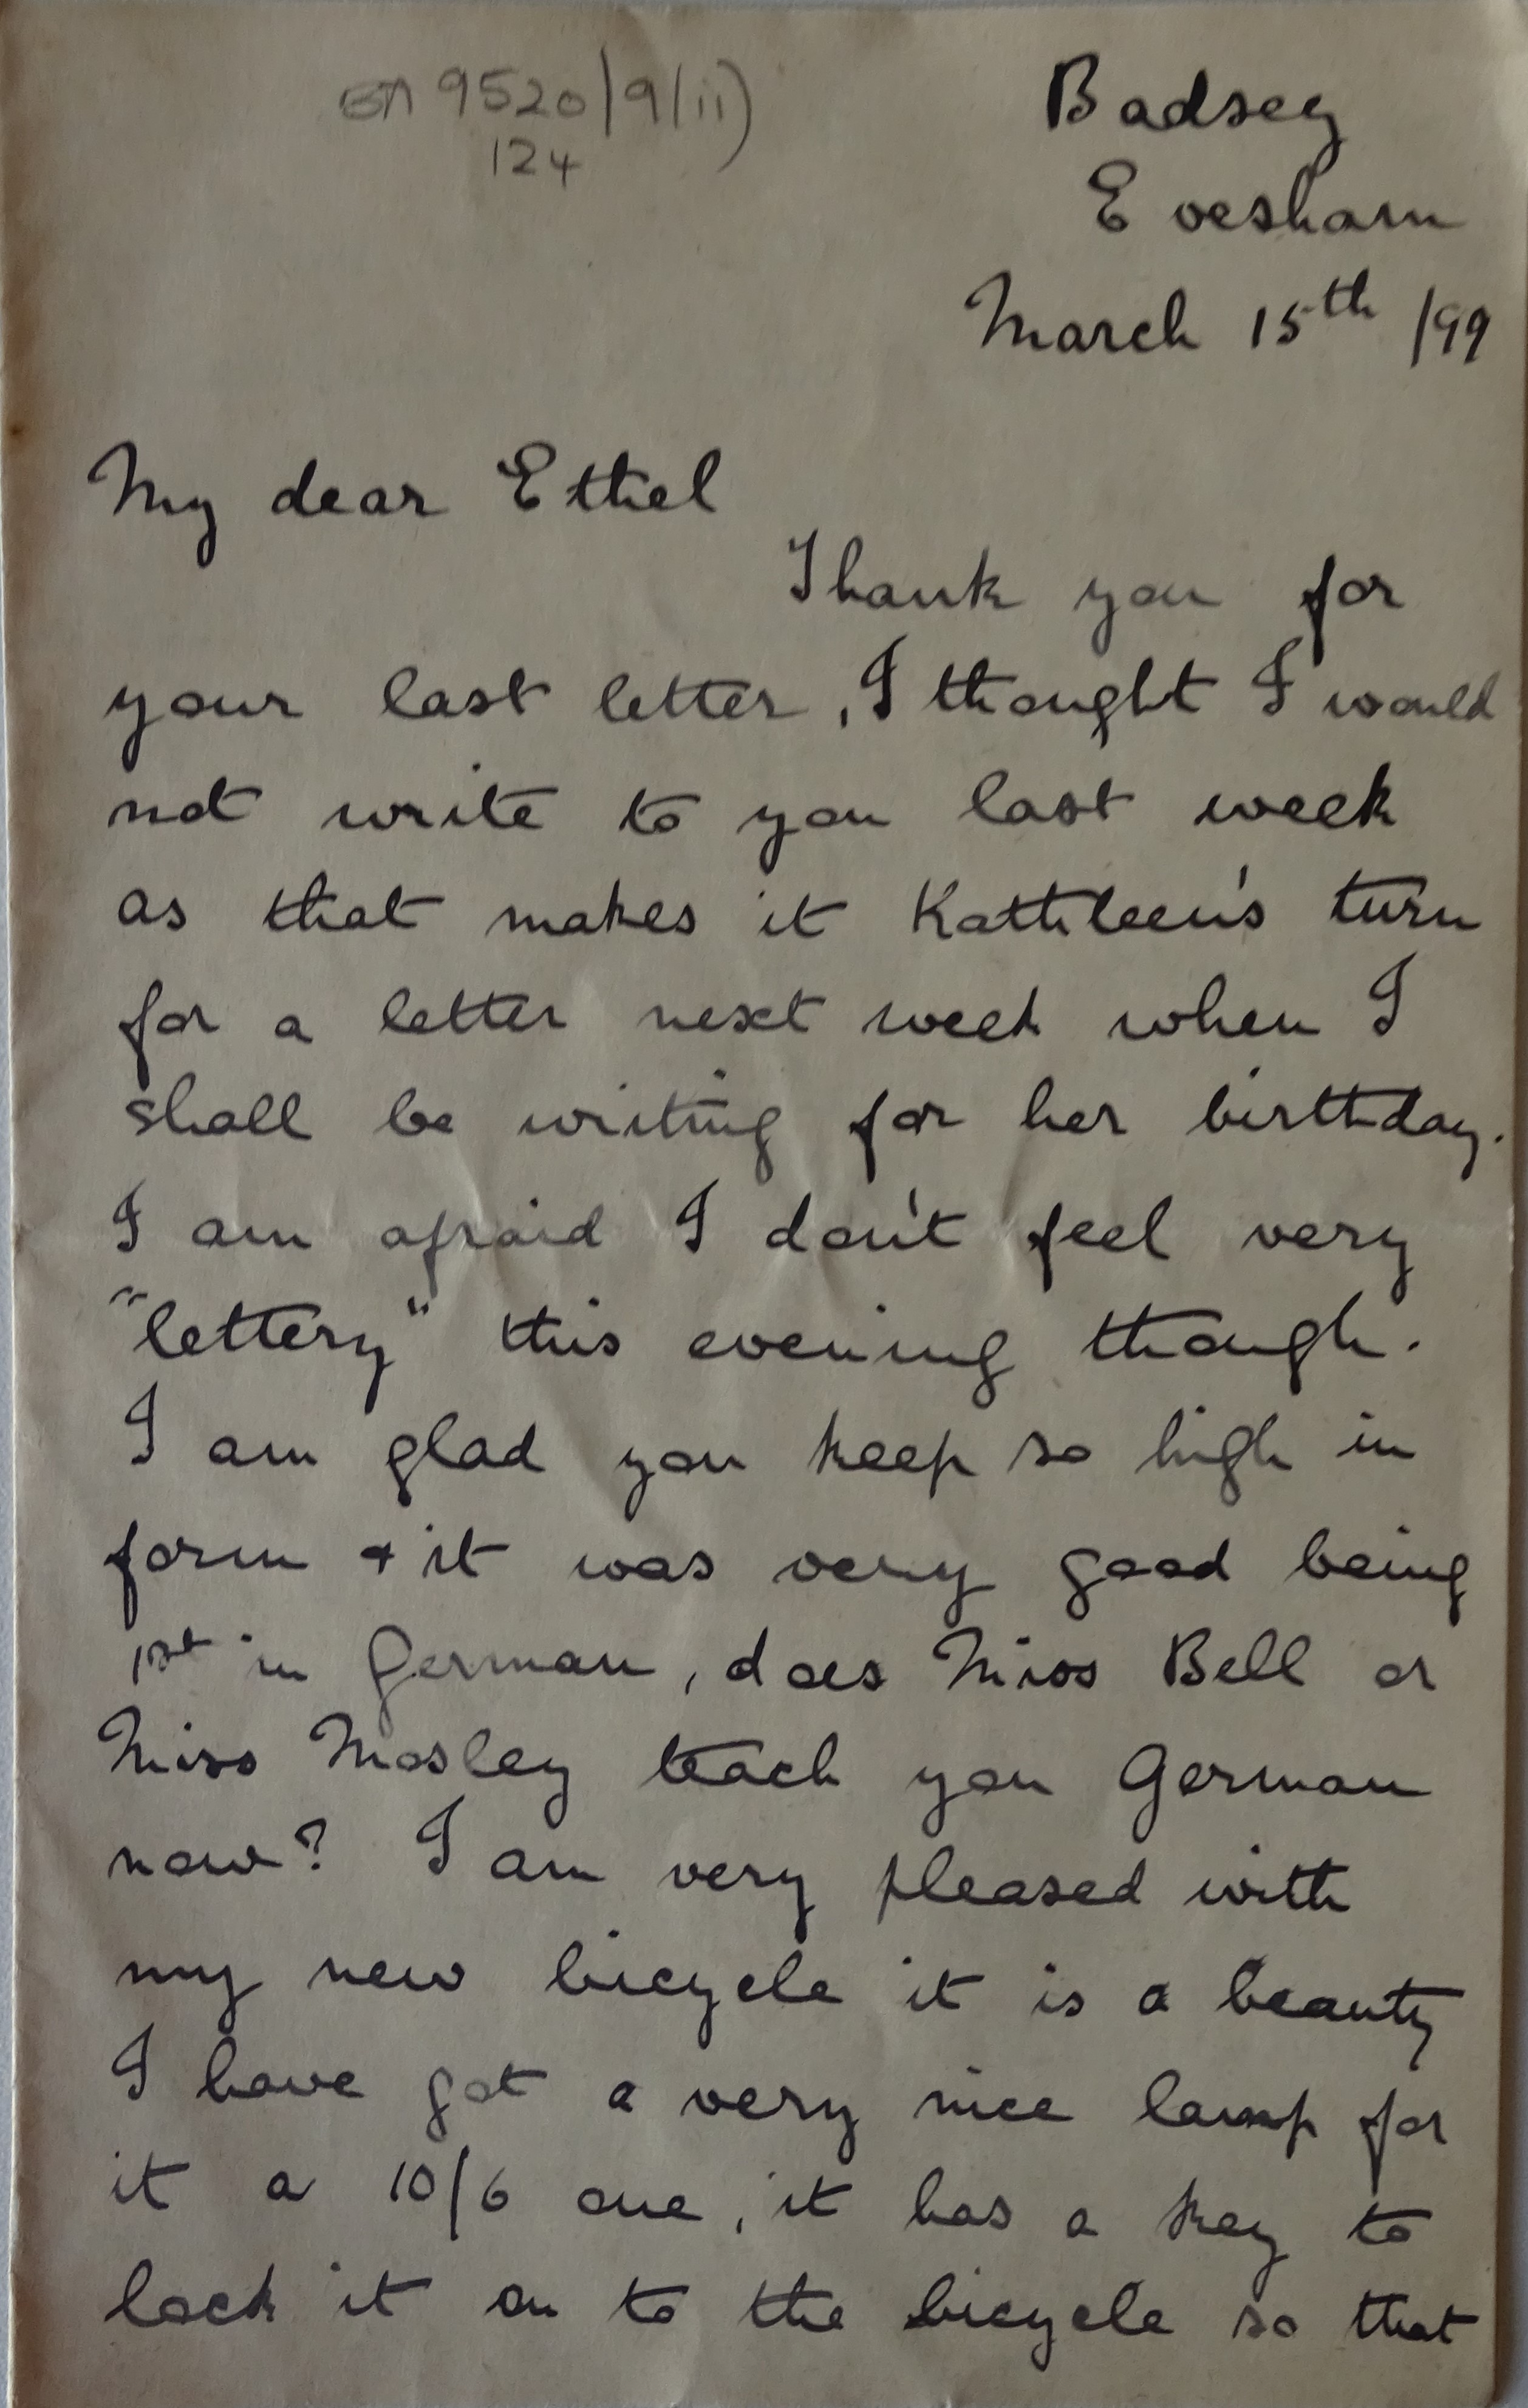 9520/9/ii)
124
Badsey
Evesham
March 15th /99
My dear Ethel
Thank you for
your last letter, I thought I would
not write to you last week
as that makes it Kathleen's turn
for a letter next week when I
shall be writing for her birthday.
I am afraid I don't feel very
"lettery" this evening though.
I am glad you keep so high in
form + it was very good being
1st in German, does Miss Bell or
Miss Mosley teach you German
now? I am very pleased with
my new bicycle it is a beauty
I have got a very nice lamp for
it a 10/6 one, it has a key to
lock it on to the bicycle so that